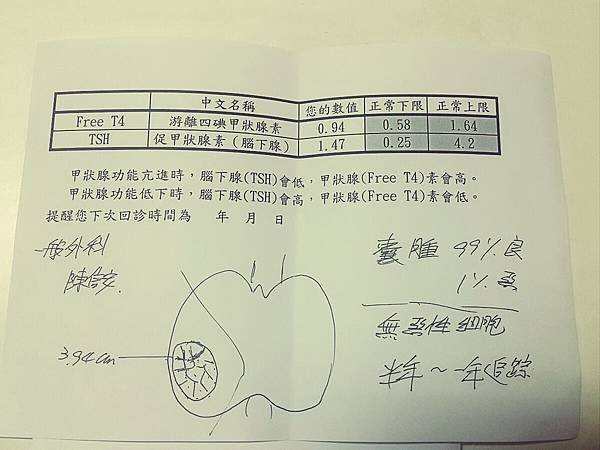 中文名稱 您的數值 正常下限 正常上限
Free T4 游離四碘甲狀腺素 0.94 0.58 1.64
TSH 促甲狀腺素(腦下腺) 1.47 0.25 4.2
甲狀腺功能亢進時，腦下腺(TSH)會低，甲狀腺(Free T4)素會高。
甲狀腺功能低下時，腦下腺(TSH)會高，甲狀腺(Free T4)素會低。
提醒您下次回診時間為 年 月 日
一般外科
陳信安
囊腫 99% 良
1% 惡
無惡性細胞
半年～一年追踪
3.94cm